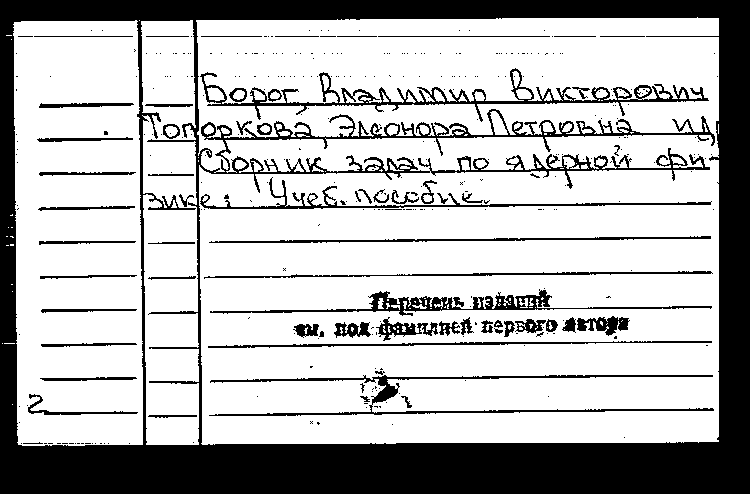 Борог, Владимир Викторович
Топоркова, Элеонора Петровна и др
Сборник задач по ядерной фи-
зике: Учеб. пособие.
Перечень изданий
см. под фамилией первого автора
2